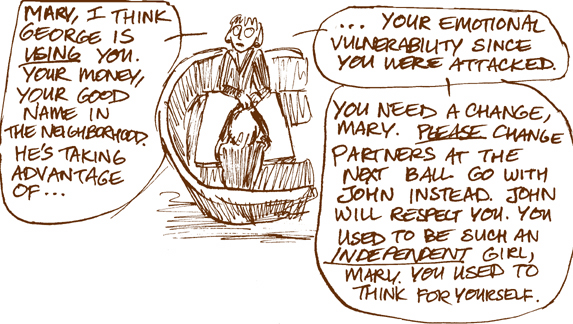 MARY, I THINK
GEORGE IS
USING YOU.
YOUR MONEY,
YOUR GOOD
NAME IN
THE NEIGHBORHOOD.
HE'S TAKING
ADVANTAGE
OF...
... YOUR EMOTIONAL
VULNERABILITY SINCE
YOU WERE ATTACKED.
YOU NEED A CHANGE,
MARY. PLEASE CHANGE
PARTNERS AT THE
NEXT BALL GO WITH
JOHN INSTEAD. JOHN
WILL RESPECT YOU. YOU
USED TO BE SUCH AN
INDEPENDENT GIRL,
MARY. YOU USED TO
THINK FOR YOURSELF.